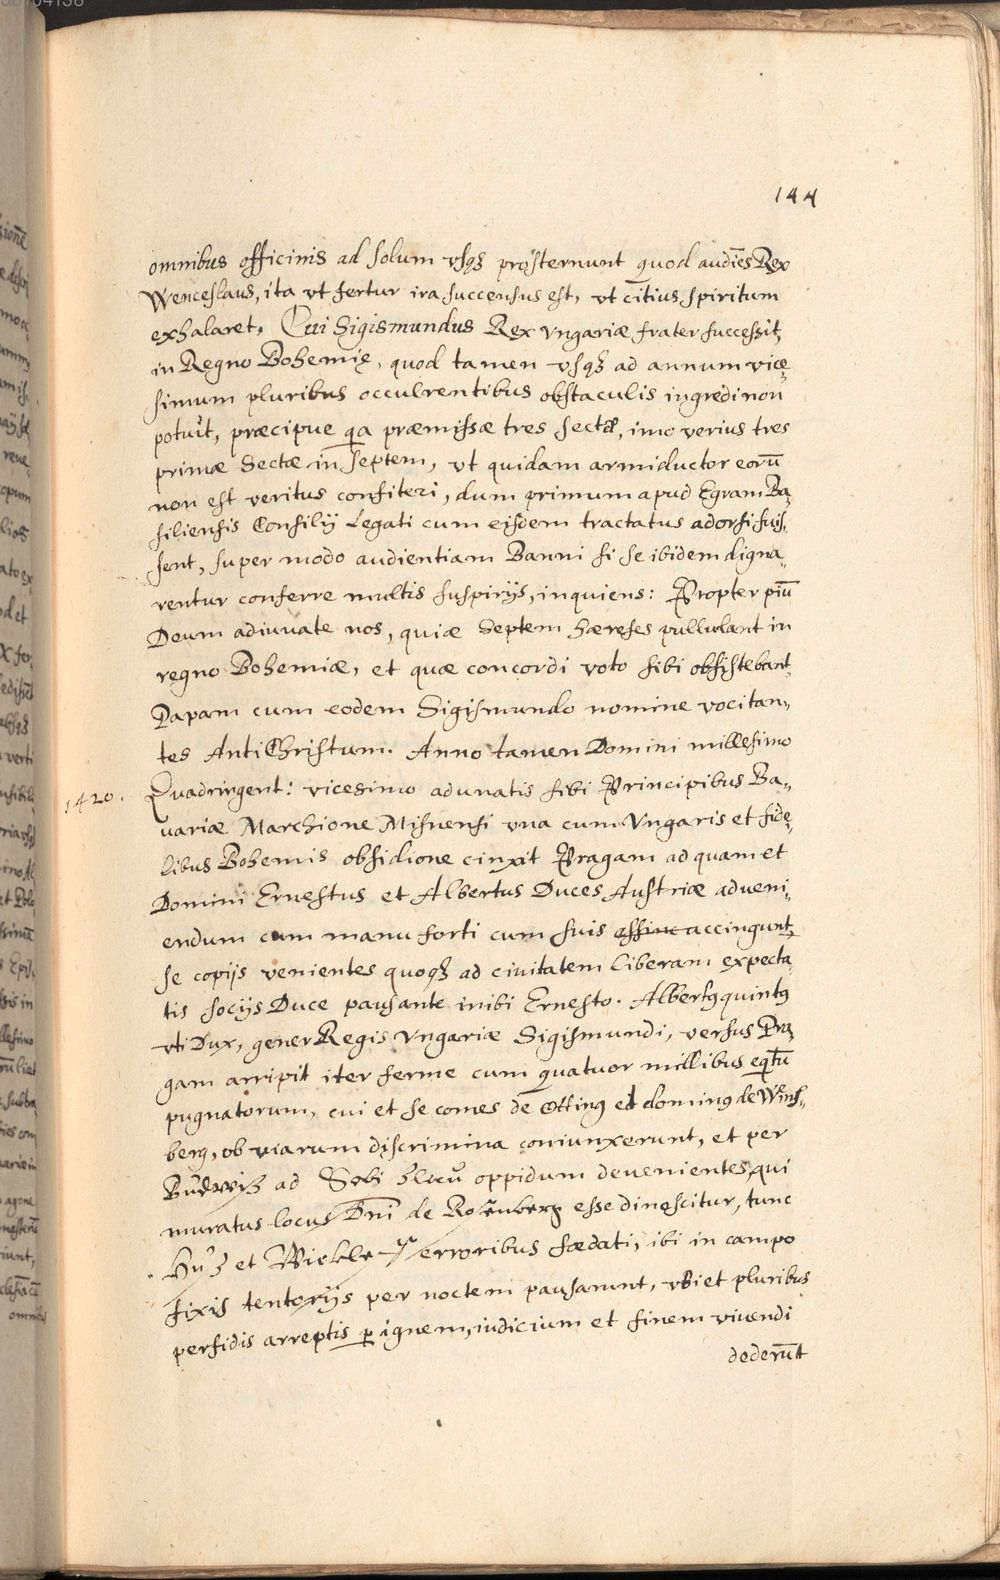 144
omnibus officinis ad solum vsqꝫ prosternunt quod audiēs Rex
Wenceslaus, ita vt fertur ira succensus est, vt citius spiritum
exhalaret. Cui Sigismundus Rex vngariæ frater successit,
in Regno Bohemię, quod tamen vsqꝫ ad annum vice„
simum pluribus occulrentibus obstaculis ingredi non
potuit, præcipue qa præmissæ tres sectæ, imo verius tres
primæ Sectæ in septem, vt quidam armiductor eorū
non est veritus confiteri, dum primum apud Egram Ba„
siliensis Consilij Legati cum eisdem tractatus adorsi fuis„
sent, super modo audientiam Banni si se ibidem digna„
rentur conferre multis suspirijs, inquiens: Propter piū
Deum adiuuate nos, quiæ Septem hæreses pullulant in
regno Bohemiæ, et quæ concordi voto sibi obsistebant,
Papam cum eodem Sigismundo nomine vocitan„
tes AntiChristum. Anno tamen Domini millesimo
1420. Quadringent: vicesimo adunatis sibi Principibus Ba„
uariæ Marchione Misnensi vna cum Vngaris et fide„
libus Bohemis obsidione cinxit Pragam ad quam et
Domini Ernestus et Albertus Duces Austriæ adueni„
endum cum manu forti cum suis accingunt,
se copijs venientes quoqꝫ ad ciuitatem liberam expecta„
tis socijs Duce pausante inibi Ernesto. Albertꝰ quintꝰ
vti Dux, gener Regis Vngariæ Sigismundi, versus Pra„
gam arripit iter ferme cum quatuor millibus eqtū
pugnatorum, cui et se comes de Otting et dominꝰ de Wins„
berg, ob viarum discrimina coniunxerunt, et per
Budwiß ad oppidum deuenientes, qui
muratus locus Dni de Rosenberg esse dinoscitur, tunc
Huß et Wickleff erroribus fœdati, ibi in campo
fixis tentorijs per noctem pausarunt, vbi et pluribus
perfidis arreptis p ignem, iudicium et finem viuendi
dederūt